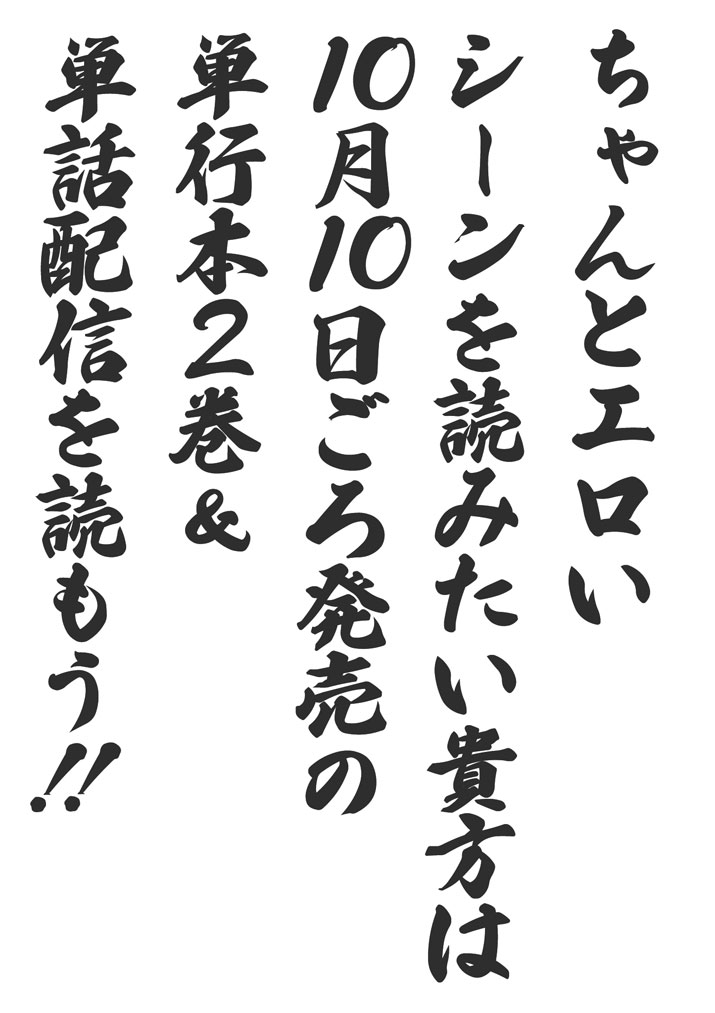 ちゃんとエロい
シーンを読みたい貴方は
10月10日ごろ発売の
単行本2巻&
単話配信を読もう!!